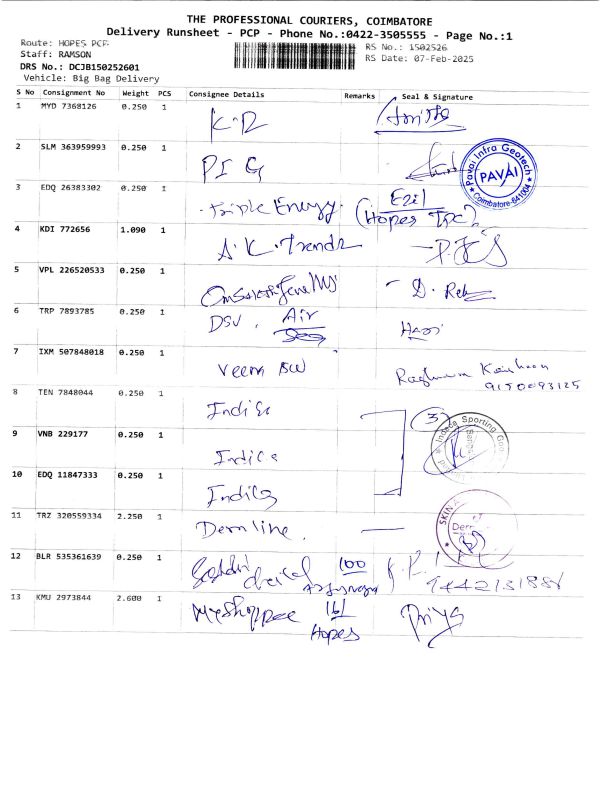 THE PROFESSIONAL COURIERS, COIMBATORE
Delivery Runsheet - PCP - Phone No.:0422-3505555 - Page No.:1
Route: HOPES PCP
Staff: RAMSON
DRS No.: DCJB150252601
Vehicle: Big Bag Delivery
RS No.: 1502526
RS Date: 07-Feb-2025
S No Consignment No Weight PCS Consignee Details Remarks Seal & Signature
1 MYD 7368126 0.250 1 K.R
2 SLM 363959993 0.250 1 PIG
Pavai Infra Geotech
PAVAI
Coimbatore-641004
3 EDQ 26383302 0.250 1 Triple Energy. Ezil
(Hopes
4 KDI 772656 1.090 1 A.K. Trends
5 VPL 226520533 0.250 1 D.
6 TRP 7893785 0.250 1 DSV. Air
7 IXM 507848018 0.250 1 Veera
9150093125
8 TEN 7848044 0.250 1
3
9 VNB 229177 0.250 1
Sporting
10 EDQ 11847333 0.250 1
11 TRZ 320559334 2.250 1 Dermline.
SKIN
12 BLR 535361639 0.250 1 100
13 KMU 2973844 2.600 1 Myshoppee 161 Priya
Hopes